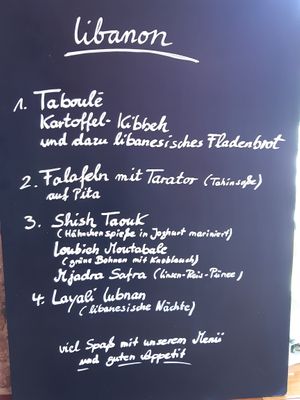 libanon
1. Taboulé
Kartoffel-Kibbeh
und dazu libanesisches Fladenbrot
2. Falafeln mit Tarator (Tahinsoße)
auf Pita
3. Shish Taouk
(Hähnchenspieße in Joghurt mariniert)
Loubieh Moutabale
(grüne Bohnen mit Knoblauch)
Mjadra Safra (Linsen-Reis-Püree)
4. Layali lubnan
(libanesische Nächte)
viel Spaß mit unserem Menü
und guten Appetit